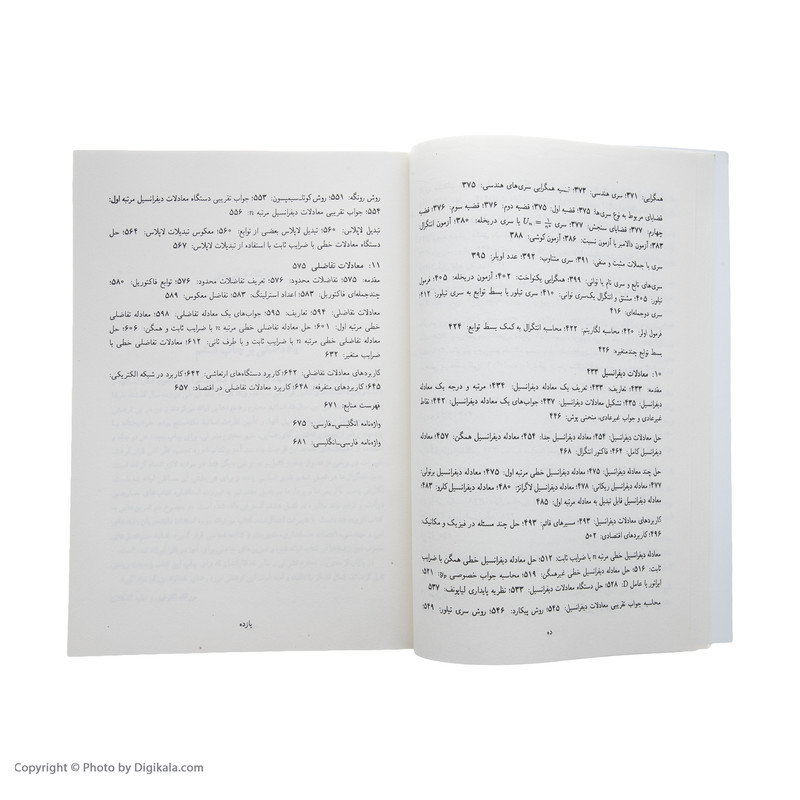 همگرایی: ۳۷۱؛ سری هندسی: ۳۷۳؛ همگرایی سری‌های هندسی: ۳۷۵
قضایای مربوط به نوع سری‌ها: ۳۷۵؛ قضیه اول: ۳۷۵؛ قضیه دوم: ۳۷۶؛ قضیه سوم: ۳۷۶؛ قضیه
چهارم: ۳۷۷؛ قضایای سنجش: ۳۷۷؛ سری یا سری دریخله: ۳۸۰؛ آزمون انتگرال
۳۸۳؛ آزمون دالامبر یا آزمون نسبت: ۳۸۶؛ آزمون کوشی: ۳۸۸
سری با جملات مثبت و منفی: ۳۹۱؛ سری متناوب: ۳۹۲؛ عدد اویلر: ۳۹۵
سری‌های تابع و سری تام یا توانی: ۳۹۹؛ همگرایی یکنواخت: ۴۰۲؛ آزمون دریخله: ۴۰۵؛ فرمول
تیلور: ۴۰۵؛ مشتق و انتگرال یک سری توانی: ۴۱۰؛ سری تیلور یا بسط توابع به سری تیلور: ۴۱۲؛
سری دوجمله‌ای: ۴۱۶
فرمول اولر: ۴۲۰؛ محاسبه لگاریتم: ۴۲۲؛ محاسبه انتگرال به کمک بسط توابع: ۴۲۴
بسط توابع چندمتغیره: ۴۲۶
۱۰: معادلات دیفرانسیل ۴۳۳
مقدمه: ۴۳۳؛ تعاریف: ۴۳۳؛ تعریف یک معادله دیفرانسیل: ۴۳۴؛ مرتبه و درجه یک معادله
دیفرانسیل: ۴۳۵؛ تشکیل معادلات دیفرانسیل: ۴۳۷؛ جواب‌های یک معادله دیفرانسیل: ۴۴۲؛ نقاط
غیرعادی و جواب غیرعادی، منحنی پوش: ۴۴۶
حل معادلات دیفرانسیل: ۴۵۴؛ معادله دیفرانسیل جدا: ۴۵۴؛ معادله دیفرانسیل همگن: ۴۵۷؛ معادله
دیفرانسیل کامل: ۴۶۴؛ فاکتور انتگرال: ۴۶۸
حل چند معادله دیفرانسیل: ۴۷۵؛ معادله دیفرانسیل خطی مرتبه اول: ۴۷۵؛ معادله دیفرانسیل برنولی:
۴۷۷؛ معادله دیفرانسیل ریکاتی: ۴۷۸؛ معادله دیفرانسیل لاگرانژ: ۴۸۰؛ معادله دیفرانسیل کلرو: ۴۸۳؛
معادله دیفرانسیل قابل تبدیل به معادله مرتبه اول: ۴۸۵
کاربردهای معادلات دیفرانسیل: ۴۹۳؛ مسیرهای قائم: ۴۹۳؛ حل چند مسئله در فیزیک و مکانیک:
۴۹۶؛ کاربردهای اقتصادی: ۵۰۲
معادله دیفرانسیل خطی مرتبه n با ضرایب ثابت: ۵۱۲؛ حل معادله دیفرانسیل خطی همگن با ضرایب
ثابت: ۵۱۶؛ حل معادله دیفرانسیل خطی غیرهمگن: ۵۱۹؛ محاسبه جواب خصوصی yp: ۵۲۱؛
اپراتور یا عامل D: ۵۲۸؛ حل دستگاه معادلات دیفرانسیل: ۵۳۳؛ نظریه پایداری لیاپونف: ۵۳۷
محاسبه جواب تقریبی معادلات دیفرانسیل: ۵۴۵؛ روش پیکارد: ۵۴۶؛ روش سری تیلور: ۵۴۹؛
ده
روش رونگه: ۵۵۱؛ روش کوتا-سیمپسون: ۵۵۳؛ جواب تقریبی دستگاه معادلات دیفرانسیل مرتبه اول:
۵۵۴؛ جواب تقریبی معادلات دیفرانسیل مرتبه n: ۵۵۶
تبدیل لاپلاس: ۵۶۰؛ تبدیل لاپلاس بعضی از توابع: ۵۶۰؛ معکوس تبدیلات لاپلاس: ۵۶۴؛ حل
دستگاه معادلات خطی با ضرایب ثابت با استفاده از تبدیلات لاپلاس: ۵۶۷
۱۱: معادلات تفاضلی ۵۷۵
مقدمه: ۵۷۵؛ تفاضلات محدود: ۵۷۶؛ تعریف تفاضلات محدود: ۵۷۶؛ توابع فاکتوریل: ۵۸۰؛
چندجمله‌ای فاکتوریل: ۵۸۳؛ اعداد استرلینگ: ۵۸۳؛ تفاضل معکوس: ۵۸۹
معادلات تفاضلی: ۵۹۴؛ تعاریف: ۵۹۵؛ جواب‌های یک معادله تفاضلی: ۵۹۸؛ معادله تفاضلی
خطی مرتبه اول: ۶۰۱؛ حل معادله تفاضلی خطی مرتبه n با ضرایب ثابت و همگن: ۶۰۶؛ حل
معادله تفاضلی خطی مرتبه n با ضرایب ثابت و با طرف ثانی: ۶۱۲؛ معادله تفاضلی خطی با
ضرایب متغیر: ۶۳۲
کاربردهای معادلات تفاضلی: ۶۴۲؛ کاربرد دستگاه‌های ارتعاشی: ۶۴۲؛ کاربرد در شبکه الکتریکی:
۶۴۵؛ کاربردهای متفرقه: ۶۴۸؛ کاربرد معادلات تفاضلی در اقتصاد: ۶۵۷
فهرست منابع: ۶۷۱
واژه‌نامه انگلیسی-فارسی: ۶۷۵
واژه‌نامه فارسی-انگلیسی: ۶۸۱
یازده
Copyright © Photo by Digikala.com